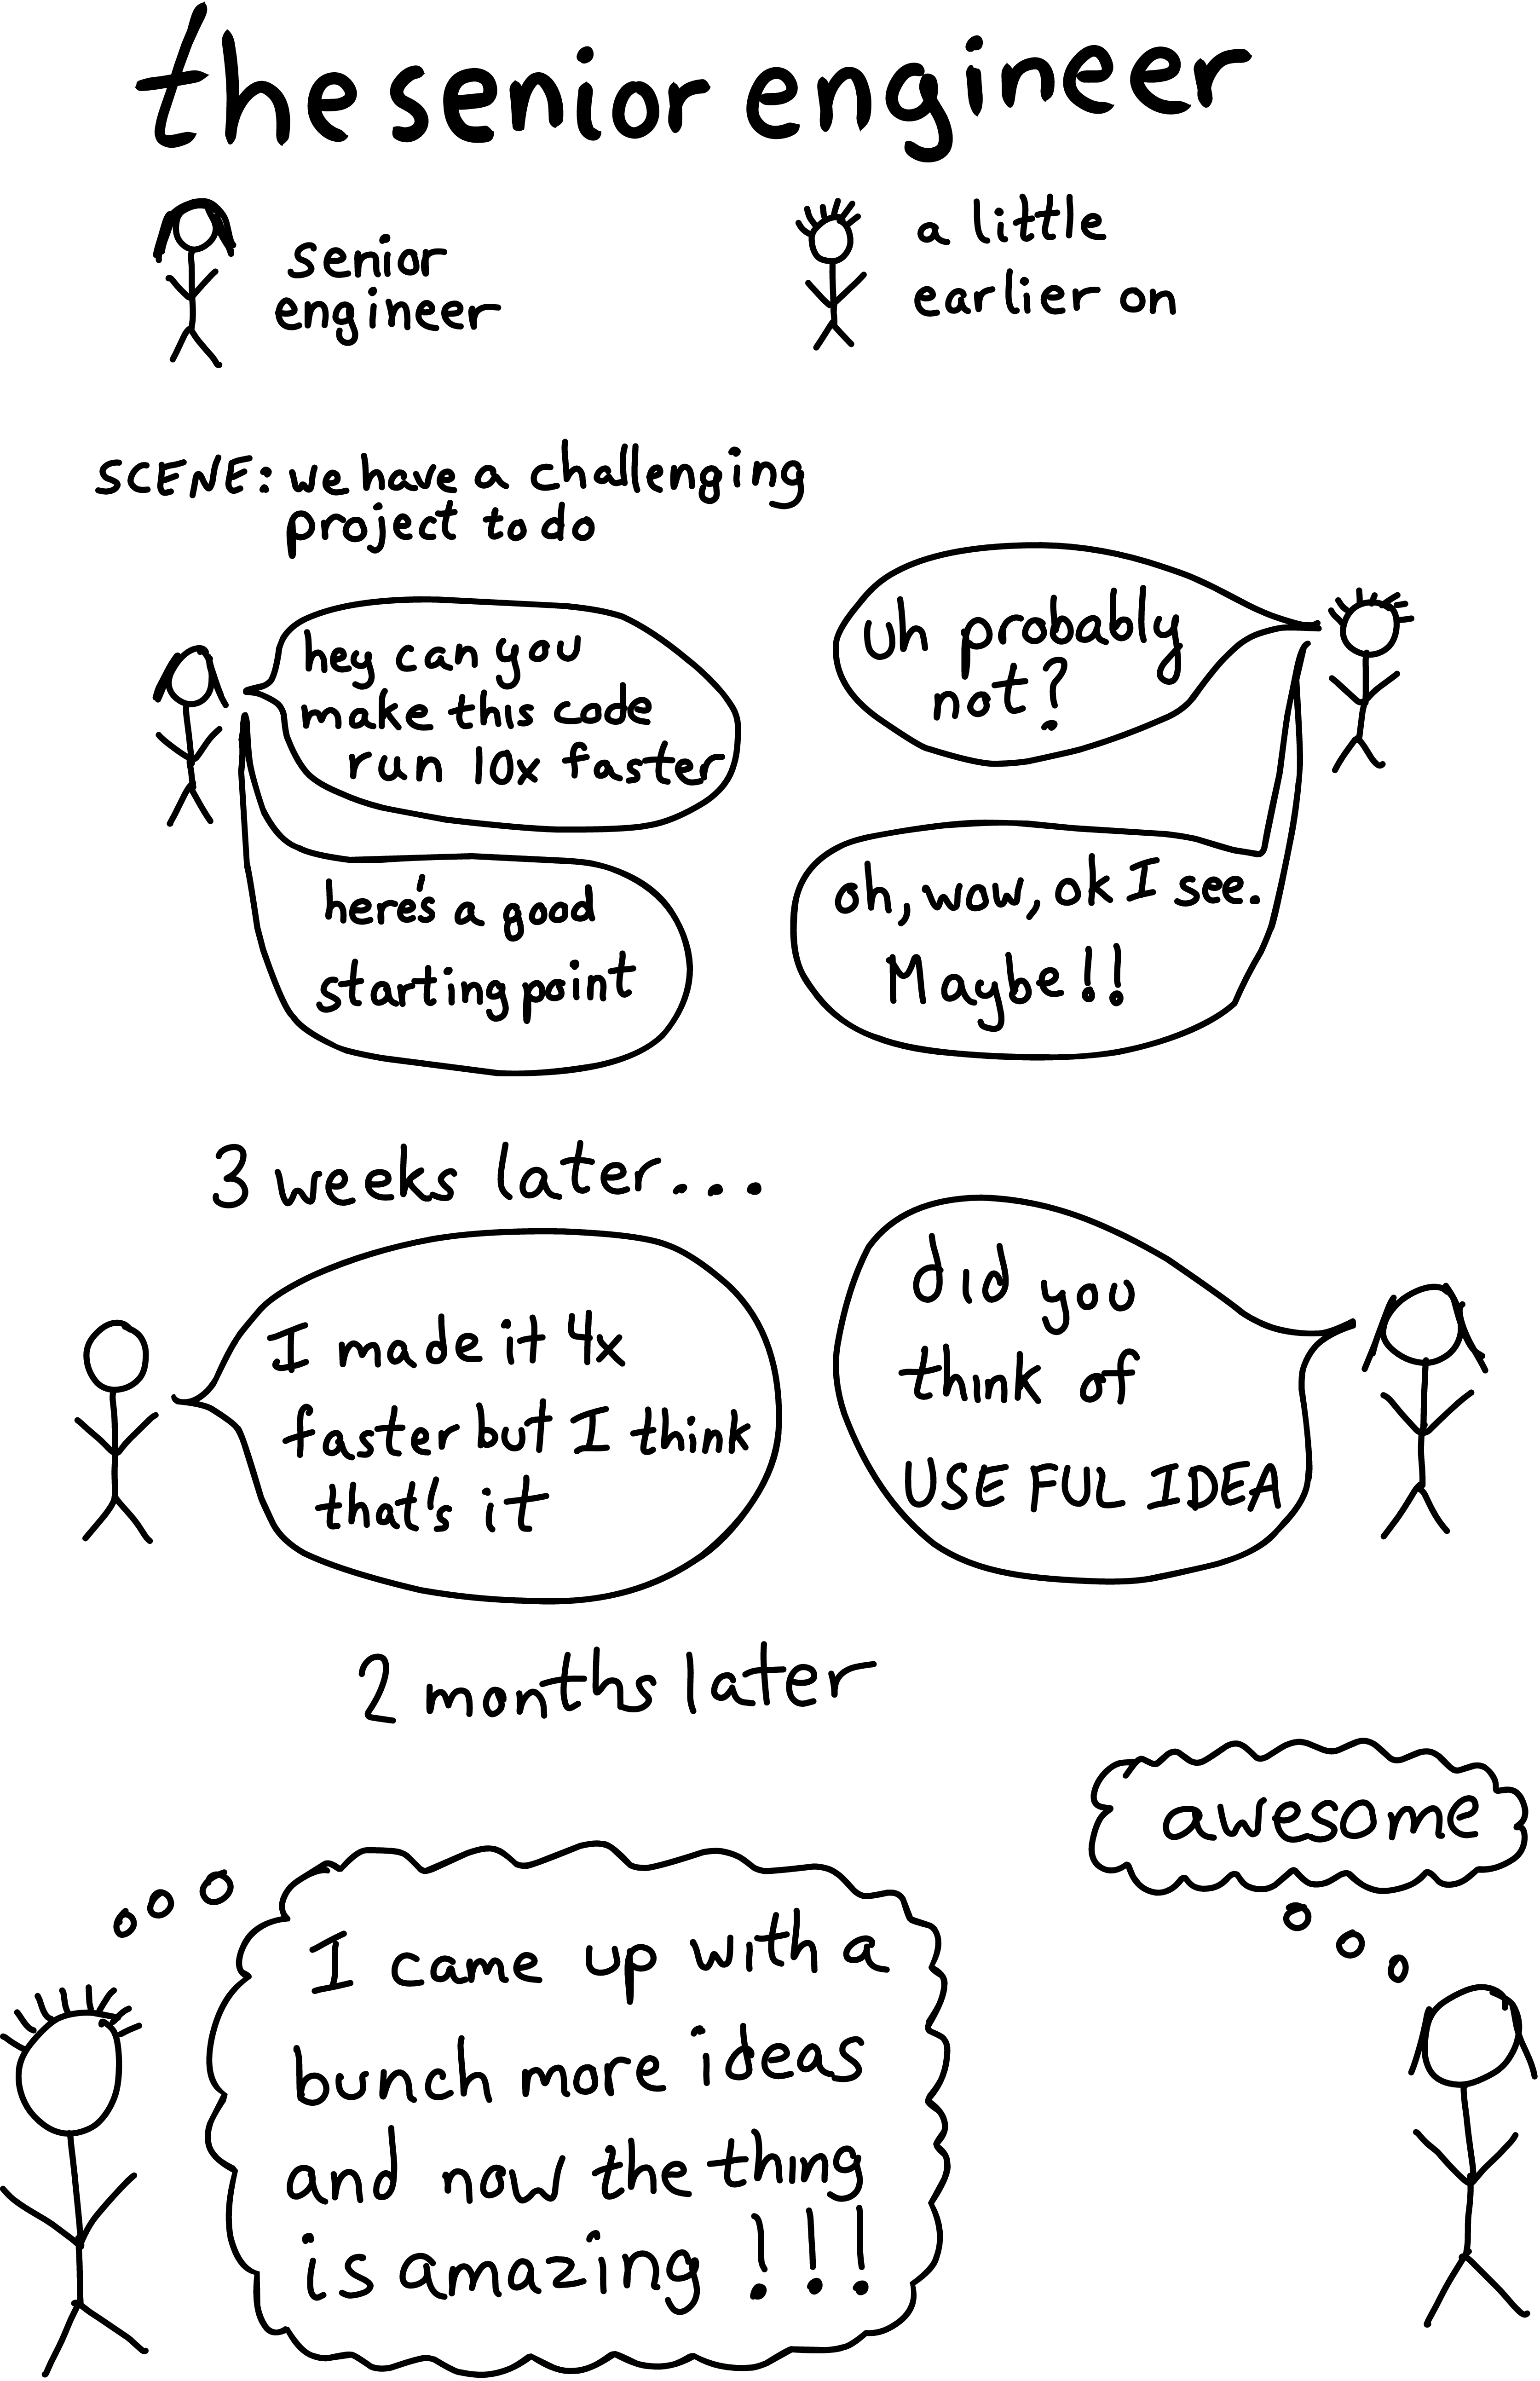 the senior engineer
senior
engineer
a little
earlier on
SCENE: we have a challenging
project to do
hey can you
make this code
run 10x faster
uh probably
not?
here's a good
starting point
oh, wow, ok I see.
Maybe!!
3 weeks later...
I made it 4x
faster but I think
that's it
did you
think of
USEFUL IDEA
2 months later
I came up with a
bunch more ideas
and now the thing
is amazing!!!
awesome